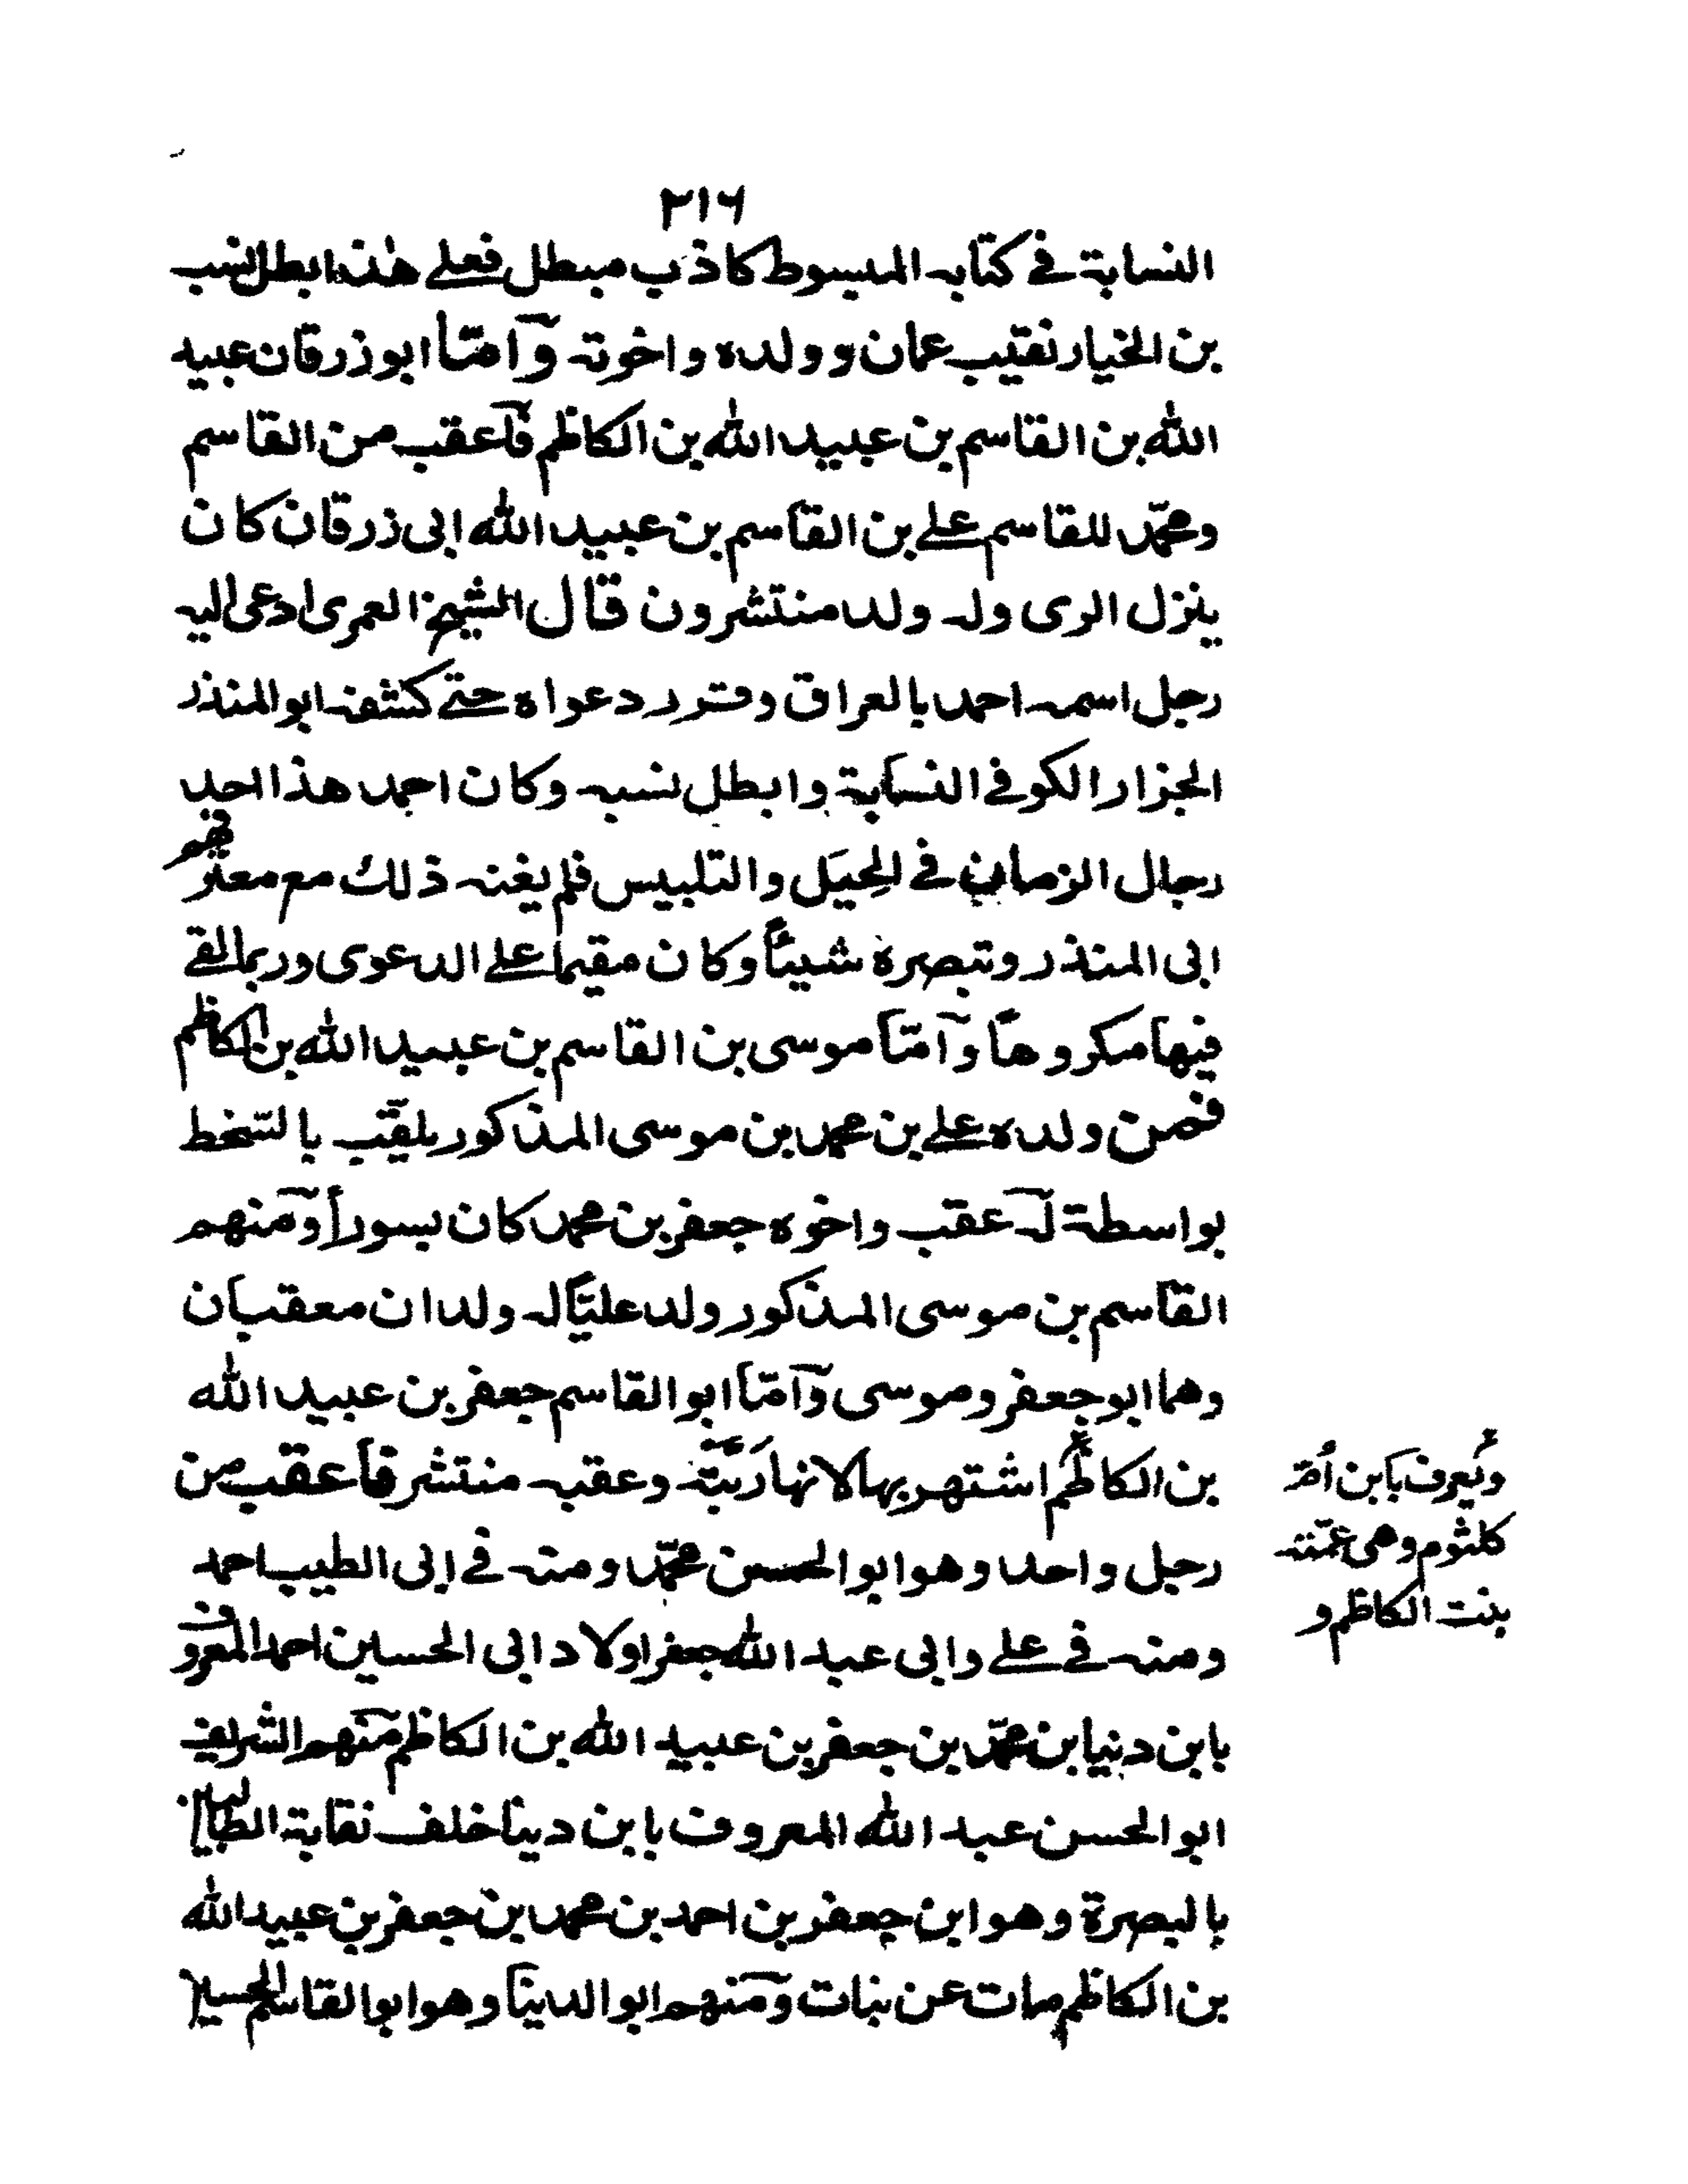 ٢١٦
النسابة في كتابه المبسوط كاذب مبطل فعلى هذا ابطل نسب
بن الخيار نقيب عمان وولده واخوته وأمّا ابو زرقان عبيد
الله بن القاسم بن عبيد الله بن الكاظم فأعقب من القاسم
ومحمّد للقاسم على بن القاسم بن عبيد الله ابى زرقان كان
ينزل الرى وله ولد منتشرون قال الشيخ العمرى ادعى اليه
رجل اسمه احمد بالعراق وتردد دعواه حتى كشفه ابو المنذر
الجزار الكوفى النسابة وابطل نسبه وكان احمد هذا احد
رجال الزمان في الحِيَل والتلبيس فلم يغنه ذلك مع معرفة
ابى المنذر وتبصره شيئاً وكان مقيما على الدعوى وربما لقى
فيها مكروهاً وأمّا موسى بن القاسم بن عبيد الله بن الكاظم
فمن ولده على بن محمد بن موسى المذكور يلقّب بالسّخط
بواسطة له عقب واخوه جعفر بن محمد كان بسورأ ومنهم
القاسم بن موسى المذكور ولد عليّاً له ولدان معقبان
وهما ابو جعفر وموسى وأمّا ابو القاسم جعفر بن عبيد الله
بن الكاظم اشتهر بها لانها ربّته وعقبه منتشر فأعقب من
ويُعرف بابن أمّ
كلثوم وهى عمّته
بنت الكاظم و
رجل واحد وهو ابو الحسن محمّد ومنه في ابى الطيب احمد
ومنه في على وابى عبد الله جعفر اولاد ابى الحسين احمد المعروف
بابن دنيا بن محمّد بن جعفر بن عبيد الله بن الكاظم منهم الشريف
ابو الحسن عبد الله المعروف بابن دينا خلف نقابة الطالبيين
بالبصرة وهو ابن جعفر بن احمد بن محمد بن جعفر بن عبيد الله
بن الكاظم مات عن بنات ومنهم ابو الدينا وهو ابو القاسم الحسين